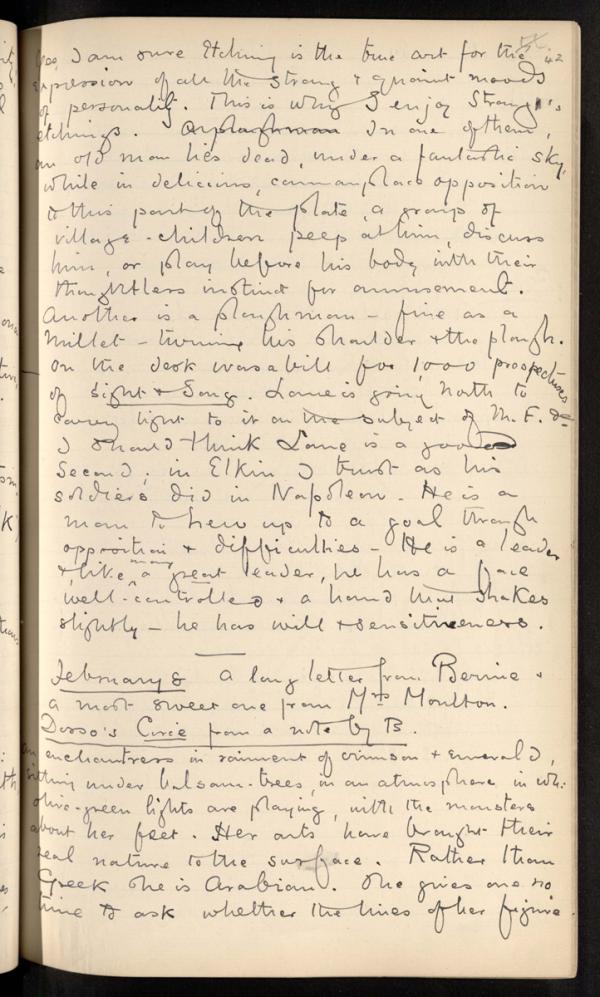 I am sure Etching is the true art for the
expression of all the strong & quaint moods
of personality. This is why I enjoy Strang's
etchings. A ploughman In one of them,
an old man lies dead, under a fantastic sky,
while in delicious, commonplace opposition
to this part of the plate, a group of
village-children peep at him, discuss
him, or play before his body with their
thoughtless instinct for amusement.
Another is a ploughman – fine as a
Millet – turning his shoulder & the plough.
On the desk was a bill for 1,000 prospectuses
of Sight & Song. Lane is going North to
carry light to it on the subject of M. F. &c
I should think Lane is a good
Second; in Elkin I trust as his
soldiers did in Napoleon. He is a
man to hew up to a goal through
opposition & difficulties – He is a leader
& like many a great leader, he has a face
well-controlled & a hand that shakes
slightly – he has will & sensitiveness.
February 8 A long letter from Bernie &
a most sweet one from Mrs Moulton.
Dosso's Circe from a note by B.
an enchantress in raiment of crimson & emerald,
sitting under balsam-trees, in an atmosphere in wh:
olive-green lights are playing, with the monsters
about her feet. Her arts have brought their
real nature to the surface. Rather than
Greek she is Arabian. She gives one no
time to ask whether the lines of her figure